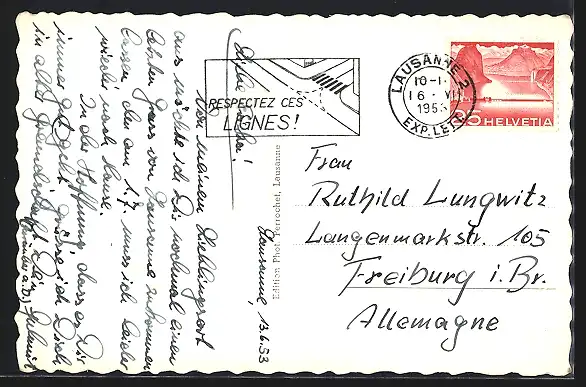 Lausanne, 13.6.53
Liebe
Von meinem Lieblingsort
aus möchte ich Dir nochmal einen
lieben Gruss von Lausanne zukommen
lassen, denn am 1.7. muss ich leider
wieder nach Hause.
In der Hoffnung, dass es Dir
immer gut geht, grüsse ich Dich
in alter Freundschaft Dein
Edition Phot. Perrochet, Lausanne
RESPECTEZ CES
LIGNES!
LAUSANNE 2
EXP. LETT.
HELVETIA
Frau
Ruthild Lungwitz
Langenmarkstr. 105
Freiburg i. Br.
Allemagne